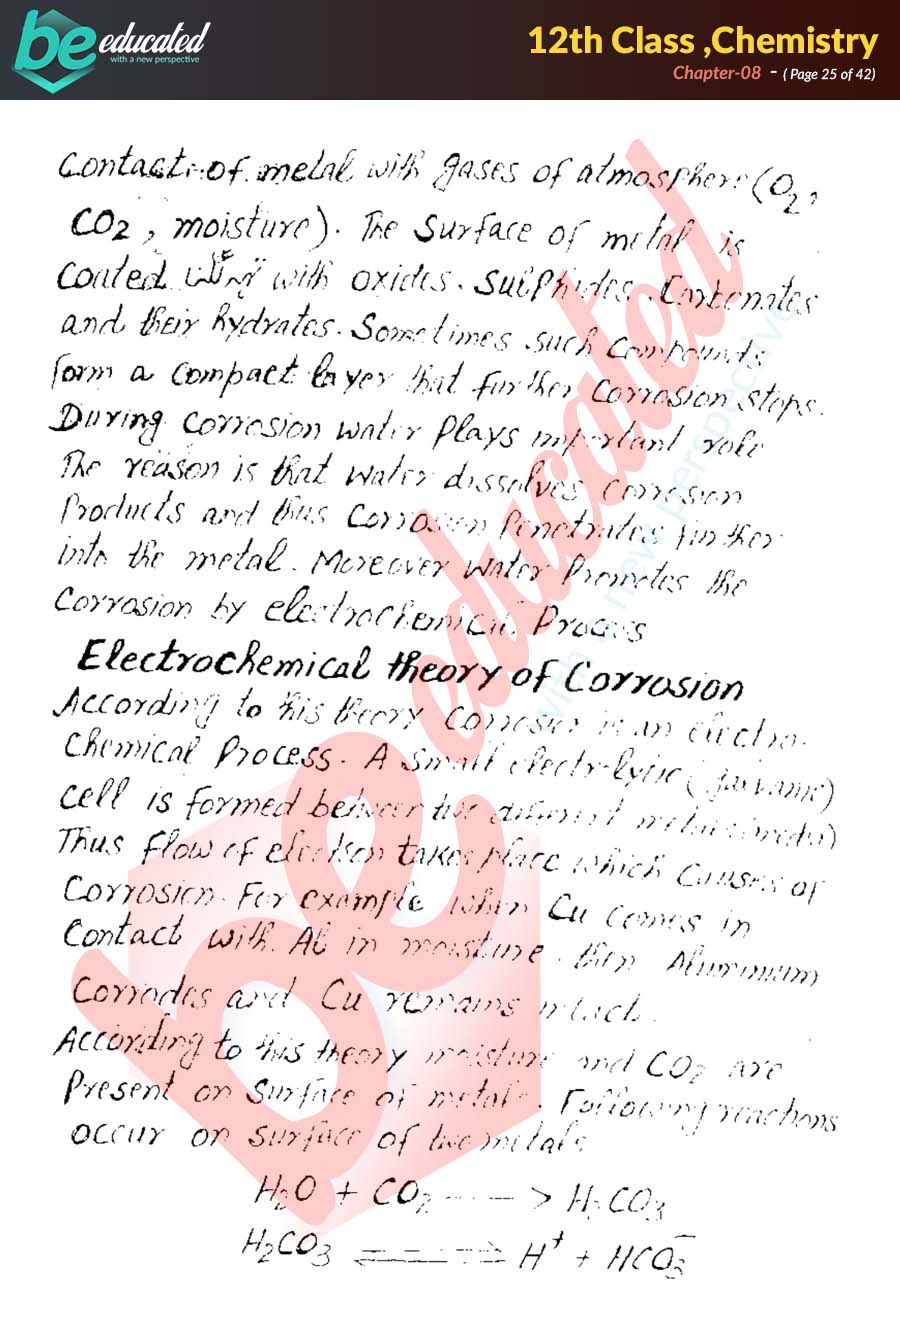 be educated
with a new perspective
12th Class ,Chemistry
Chapter-08 - ( Page 25 of 42)
Contact of metal with gases of atmosphere (O2,
CO2, moisture). The Surface of metal is
Coated with oxides. Sulphides. Carbonates
and their hydrates. Sometimes such Compounds
form a Compact layer that further Corrosion stops.
During Corrosion water Plays important role
The reason is that water dissolves Corrosion
Products and thus Corrosion Penetrates further
into the metal. Moreover water Promotes the
Corrosion by electrochemical Process
Electrochemical theory of Corrosion
According to this theory Corrosion is an electro-
Chemical Process. A Small electrolytic (galvanic)
cell is formed between two different metals
Thus flow of electron takes place which Causes of
Corrosion. For example when Cu comes in
Contact with Al in moisture. then Aluminium
Corrodes and Cu remains intact.
According to this theory moisture and CO2 are
Present on Surface of metals. Following reactions
occur on surface of two metals.
H2O + CO2 ----> H2CO3
H2CO3 ⇌ H+ + HCO3-
be educated
with a new perspective